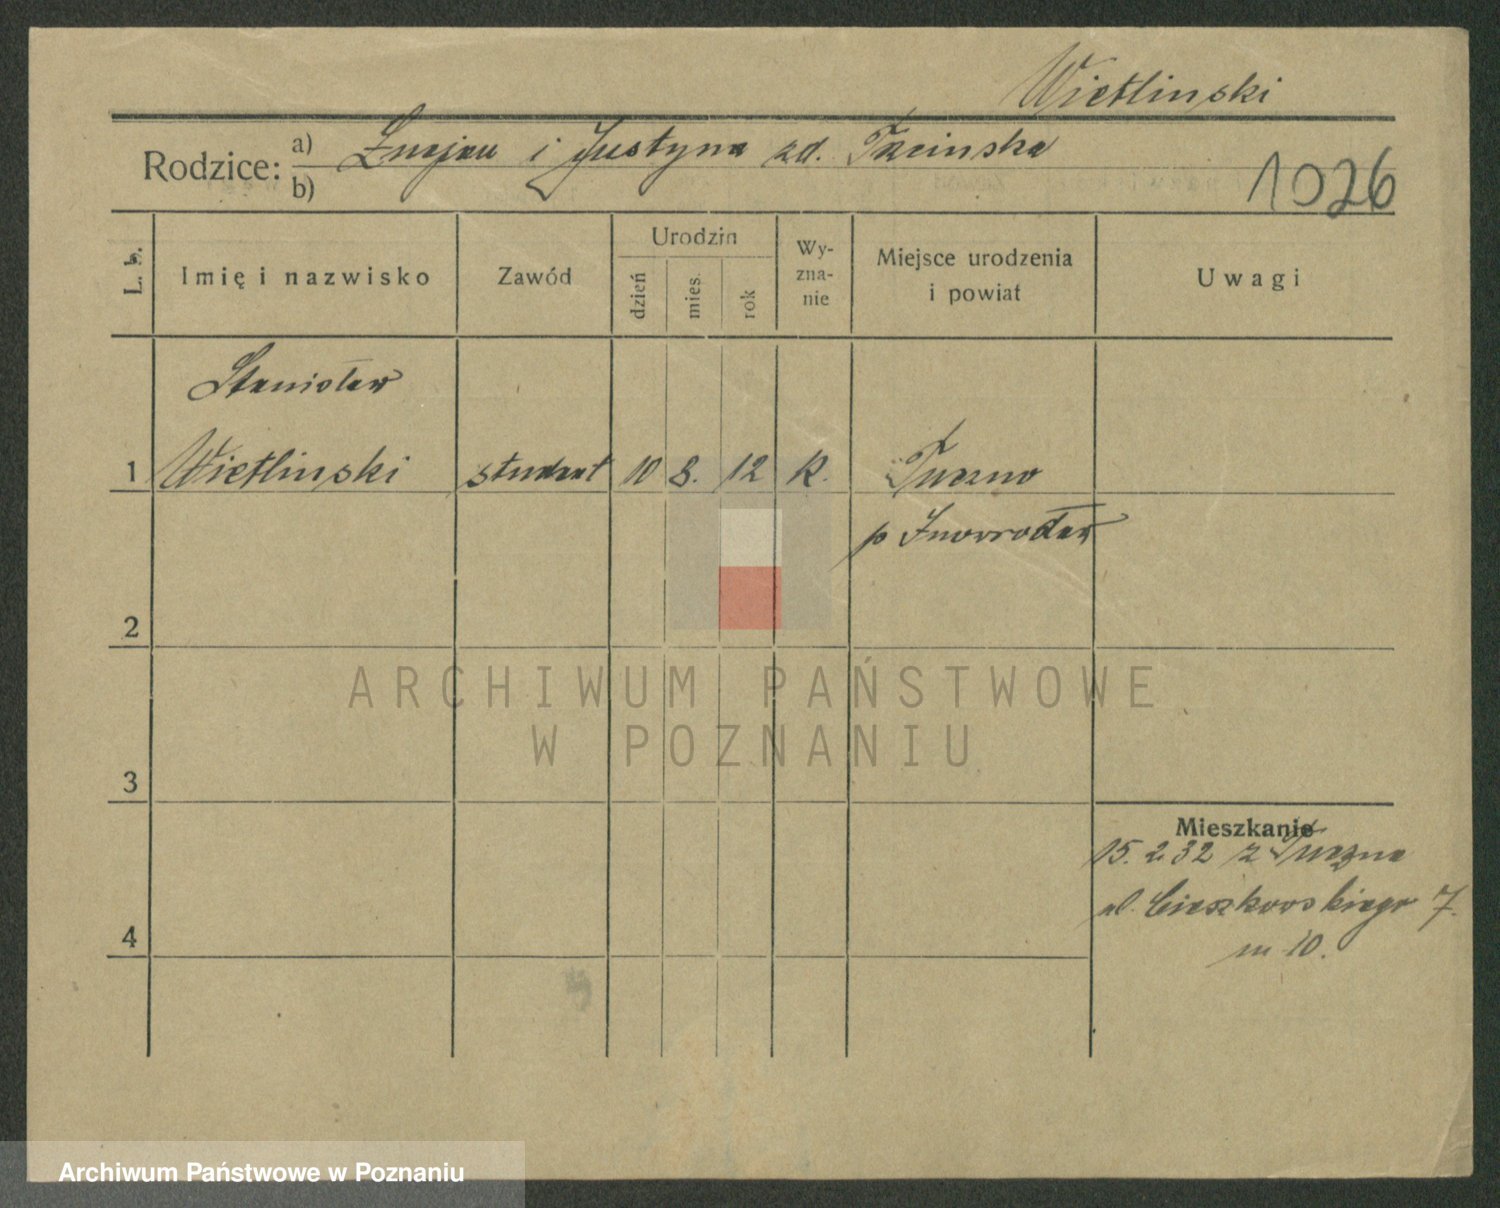 Wietlinski
Rodzice: a) i Justyna zd.
b)
1026
L. b. Imię i nazwisko Zawód Urodzin dzień mies. rok Wy-zna-nie Miejsce urodzenia i powiat Uwagi
Stanisław
1 Wietlinski student 10 8. 12 k. Tuczno
p Inowrocław
2
ARCHIWUM PAŃSTWOWE
W POZNANIU
3
Mieszkanie
15. 2 32 z Tuczna
ul. Cieszkowskiego 7.
4
m 10.
Archiwum Państwowe w Poznaniu